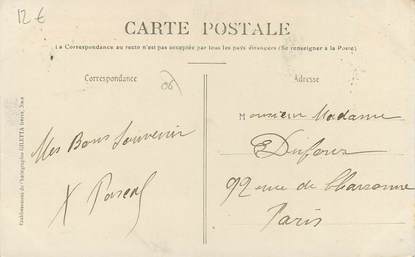 12 €
CARTE POSTALE
La Correspondance au recto n'est pas acceptée par tous les pays étrangers (Se renseigner à la Poste)
Correspondance
06
Adresse
Etablissements de Photographie GILETTA frères, Nice
Mes Bons Souvenir
X Pascal
Monsieur Madame
E Dufour
92 rue de
Paris